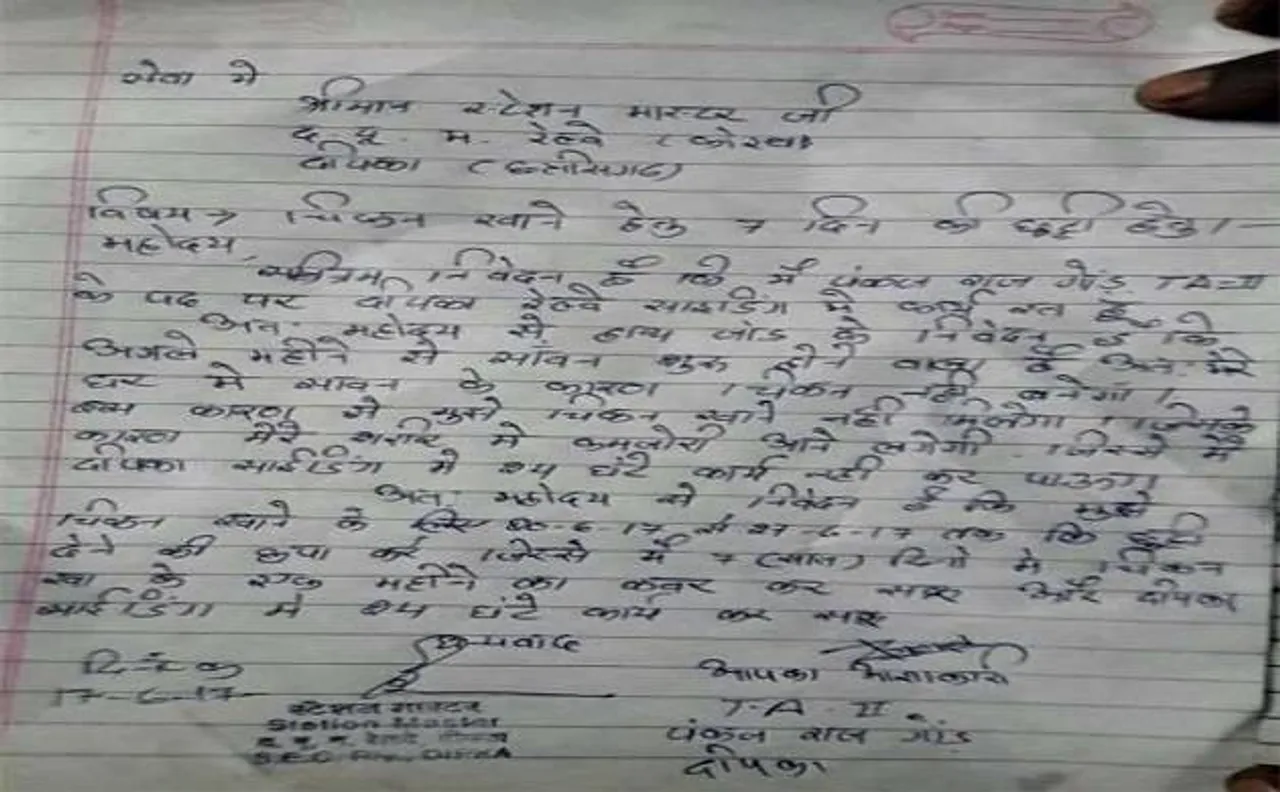 सेवा मे
श्रीमान स्टेशन मास्टर जी
द. पू. म. रेल्वे (कोरबा)
दीपका (छत्तीसगढ)
विषय → चिकन खाने हेतु 7 दिन की छुट्टी हेतु।
महोदय,
सविनय निवेदन है कि मैं पंकज राज गोंड TA-II
के पद पर दीपका रेल्वे साइडिंग मे कार्य रत हूँ
अतः महोदय से हाथ जोड के निवेदन है कि
अगले महीने से सावन शुरू होने वाला है अतः मेरे
घर मे सावन के कारण चिकन नही बनेगा।
इस कारण से मुझे चिकन खाने नही मिलेगा। जिसके
कारण मेरे शरीर मे कमजोरी आने लगेगी। जिससे मैं
दीपका साईडिंग मे 24 घंटे कार्य नही कर पाऊंगा
अतः महोदय से निवेदन है कि मुझे
चिकन खाने के लिए 20-6-17 से 27-6-17 तक कि छुट्टी
देने की कृपा करें जिससे मैं 7 (सात) दिनो मे चिकन
खा के एक महीने का कवर कर सकू और दीपका
साईडिंग मे 24 घंटे कार्य कर सकू
धन्यवाद
दिनांक
17-6-17
स्टेशन मास्टर
Station Master
S.E.C. Rly., DIPKA
आपका आज्ञाकारी
T.A. II
पंकज राज गोंड
दीपका